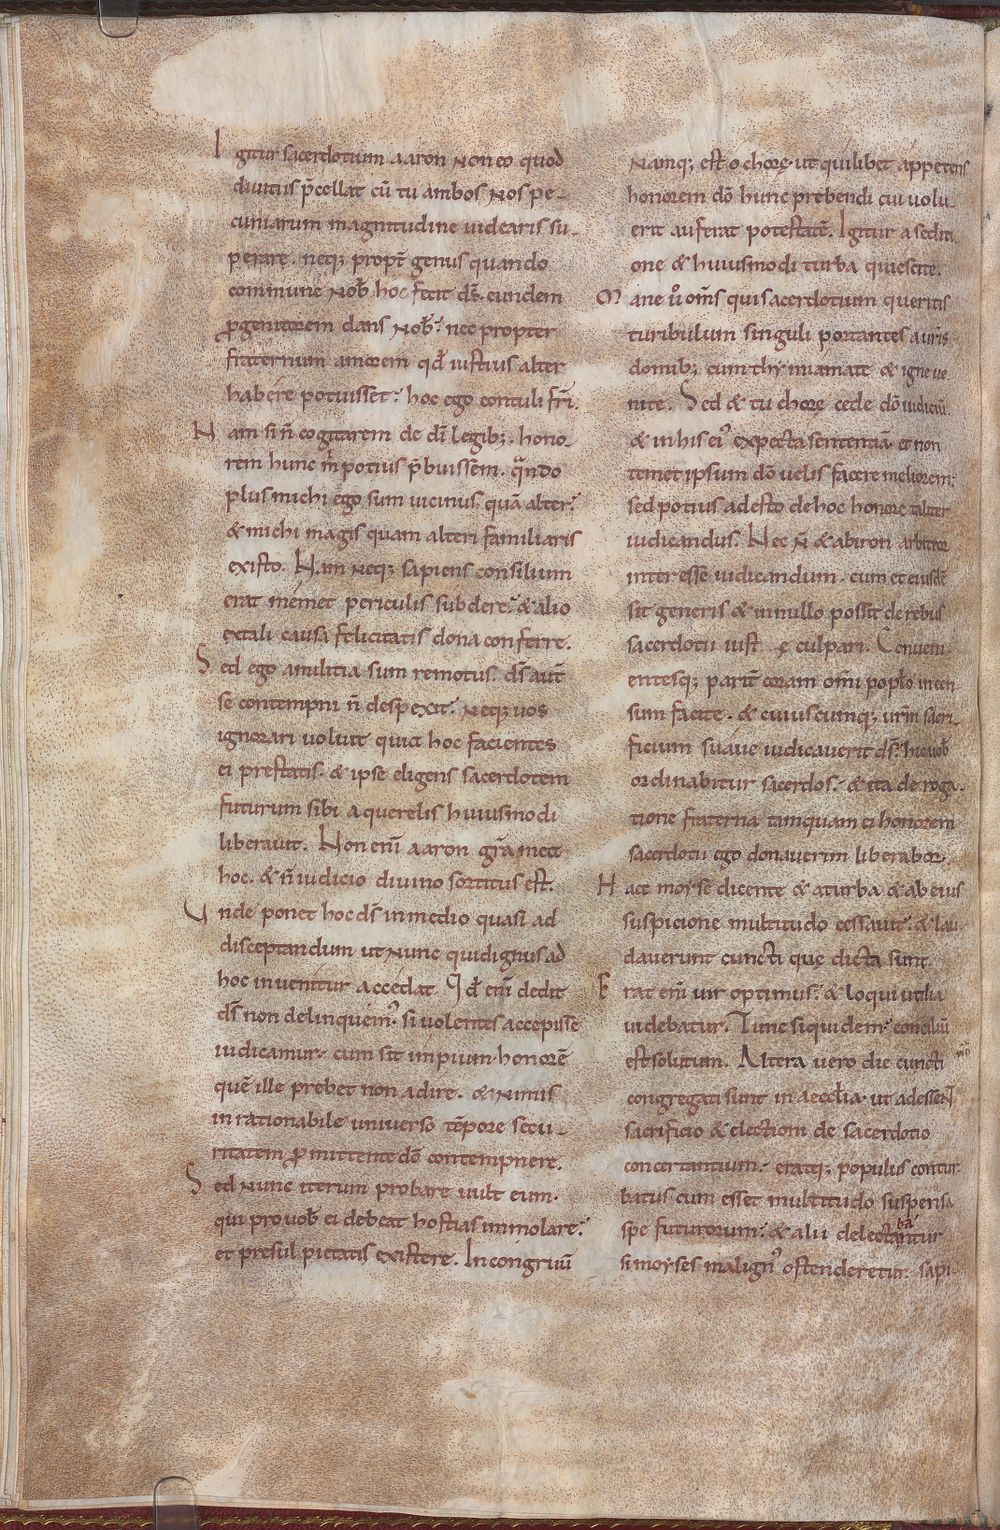 Igitur sacerdotium aaron non eo quod
diuitiis p̄cellat cū tu ambos nos pe-
cuniarum magnitudine uidearis su-
perare. neq; propt̄ genus quando
commune nob̄ hoc fecit ds̄. eundem
ꝓgenitorem dans nob̄. nec propter
fraternum amorem qd̄ iustius alter
habere potuisset. hoc ego contuli fr̄i.
Nam si n̄ cogitarem de dī legib;. hono-
rem hunc m̄ potius p̄buissem. q̄ndo
plus michi ego sum uicinus quā alter.
& michi magis quam alteri familiaris
existo. Nam neq; sapiens consilium
erat memet periculis subdere. & alio
extali causa felicitatis dona conferre.
Sed ego amilitia sum remotus. ds̄ aut̄
se contempni n̄ despexit. Neq; uos
ignorari voluit quid hoc facientes
ei prestatis. & ipse eligens sacerdotem
futurum sibi a querelis huiusmodi
liberauit. Non enī aaron gr̄a mece
hoc. & n̄ iudicio diuino sortitus est.
Unde ponet hoc ds̄ in medio quasi ad
disceptandum ut nunc qui dignus ad
hoc inuenitur accedat. Id̄ enī dedit
ds̄ non delinquem᷒. si uolentes accepisse
iudicamur. cum sit impium honorē
quē ille prebet non adire. & nimis
inrationabile uniuerso tēpore secu-
ritatem ꝓmittente dō contempnere.
Sed nunc iterum probare uult eum.
qui pro uob̄ ei debeat hostias immolare.
et presul pietatis existere. Incongruū
namq; est o chorę. ut quilibet appetens
honorem dō hunc prebendi cui uolu-
erit auferat potestatē. Igitur a sediti
one & huiusmodi turba quiescite.
Mane u̇̄ om̄s qui sacerdotium queritis
turibulum singuli portantes a uris
domib; cum thymiamate & igne ue
nite. Sed & tu chorę cede dō iudiciū.
& in his ei᷒ expecta sententiā. et non
temet ipsum dō uelis facere meliorem.
sed potius adesto de hoc honore taliter
iudicandus. Nec n̄ & abiron arbitror
inter esse iudicandum. cum et eiusdē
sit generis & in nullo possit de rebus
sacerdotii iust e culpari. Conueni
entesq; parit̄ coram om̄i poplo incen
sum facite. & cuiuscumq; urm̄ sacri-
ficium suaue iudicauerit ds̄. hic uob̄
ordinabitur sacerdos. & ita de roga-
tione fraterna tamquam ei honorem
sacerdotii ego donauerim liberabor.
Hace moyse dicente & a turba & ab eius
suspicione multitudo cessauit. & lau-
dauerunt cuncti quę dicta sunt.
Erat enī uir optimus. & loqui utilia
uidebatur. Tunc siquidem conciliū
est solutum. Altera vero die cuncti
congregati sunt in aecclīa. ut adessent
sacrificio & electioni de sacerdotio
concertantium. eratq; populus contur
batus cum esset multitudo suspensa
spe futurorum. & alii delectabantur
si moyses malign᷒ ostenderetur. sapi-